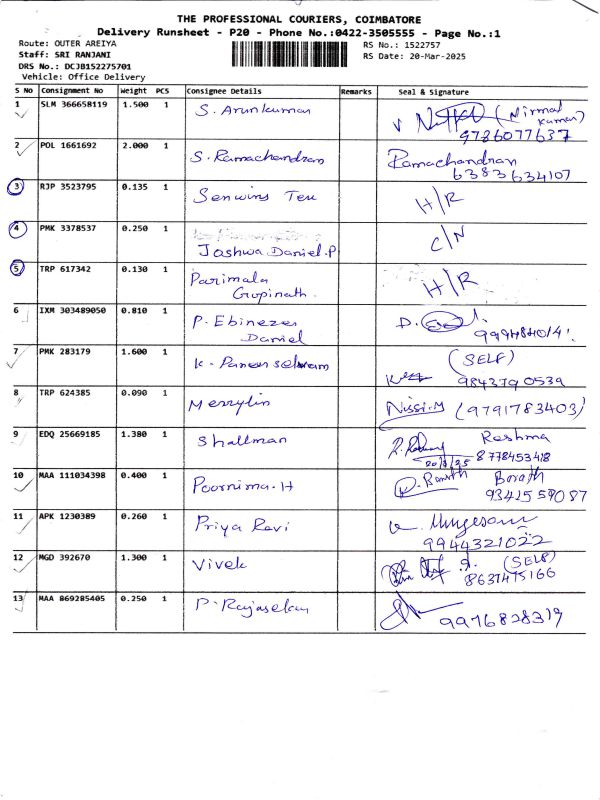 THE PROFESSIONAL COURIERS, COIMBATORE
Delivery Runsheet - P20 - Phone No.:0422-3505555 - Page No.:1
Route: OUTER AREIYA
RS No.: 1522757
Staff: SRI RANJANI
RS Date: 20-Mar-2025
DRS No.: DCJB152275701
Vehicle: Office Delivery
S No Consignment No Weight PCS Consignee Details Remarks Seal & Signature
1 SLM 366658119 1.500 1 S. Arunkumar (Nirmal Kumar)
9786077637
2 POL 1661692 2.000 1 S. Ramachandran Ramachandran
6383634107
3 RJP 3523795 0.135 1 Senwins Tex H/R
4 PMK 3378537 0.250 1 Joshwa Daniel.P C/N
5 TRP 617342 0.130 1 Parimala H/R
Gopinath.
6 IXM 303489050 0.810 1 P. Ebinezer
Daniel
7 PMK 283179 1.600 1 K. Panneerselvam (SELF)
9843790539
8 TRP 624385 0.090 1 Merrylin Nissi.M (9791783403)
9 EDQ 25669185 1.380 1 Shallman Reshma
20/3/25 8778453418
10 MAA 111034398 0.400 1 Poornima.H
9342559087
11 APK 1230389 0.260 1 Priya Ravi
9944321022
12 MGD 392670 1.300 1 Vivek (SELF)
8637475166
13 MAA 869285405 0.250 1 P. Rajasekar
9976828319